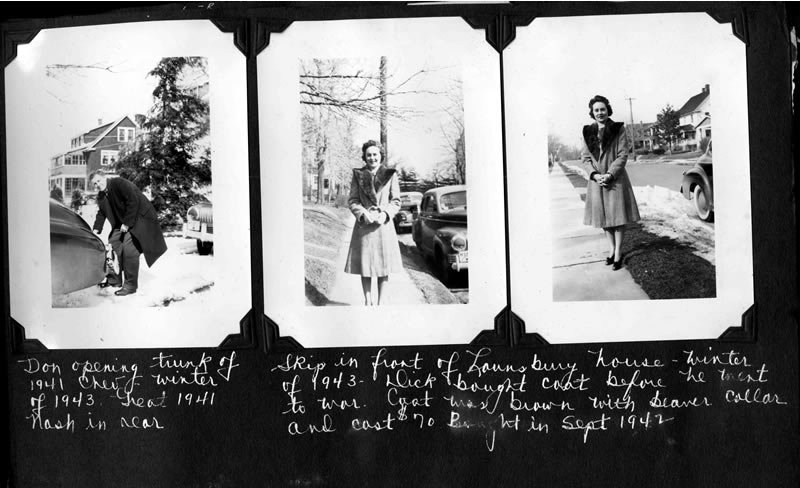 Don opening trunk of
1941 Chevy - winter
of 1943. Treat 1941
Nash in rear
Skip in front of Lounsbury house - winter
of 1943 - Dick bought coat before he went
to war. Coat was brown with beaver collar
and cost $70 Bought in Sept 1942